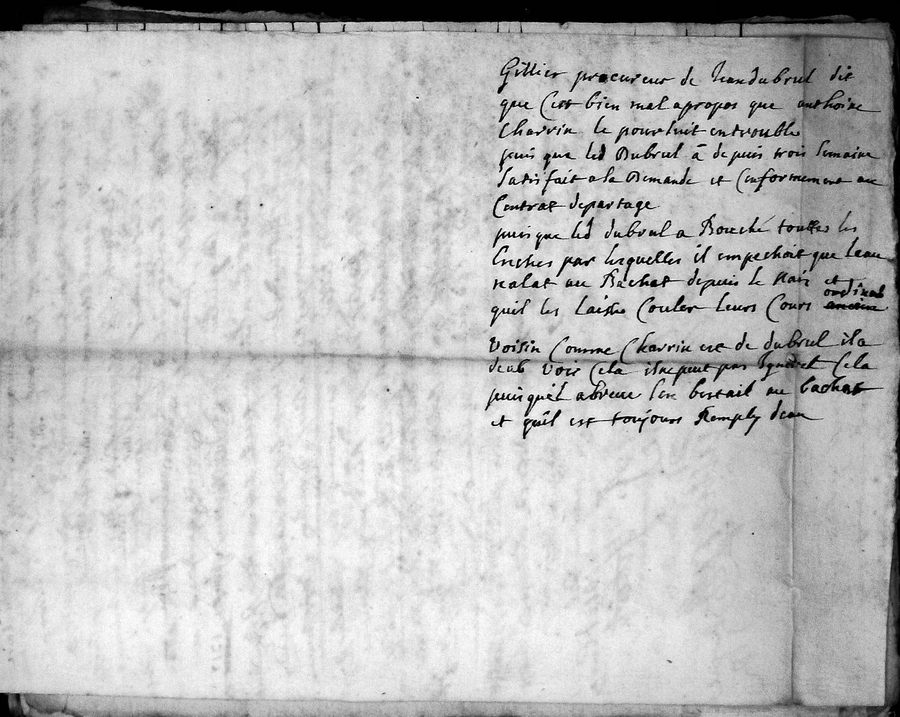 Gillier procureur de Jean dubrul dit
que C'est bien mal apropos que anthoine
Charvin le poursuit en trouble
puis que led Dubrul à depuis trois Semaine
Satisfait a la Demande et Conformement au
Contrat departage
puisque led dubrul a Bouché touttes les
par lesquelles il empechoit que leau
nalat au Bachat depuis le et
quil les laisse Couler leurs Cours ordinal
Voisin Comme Charvin est de dubrul il a
deub Voir Cela il ne peut pas Ignorer Cela
puis quil abreuve Son bestail au bachat
et quil est toujours Remply deau